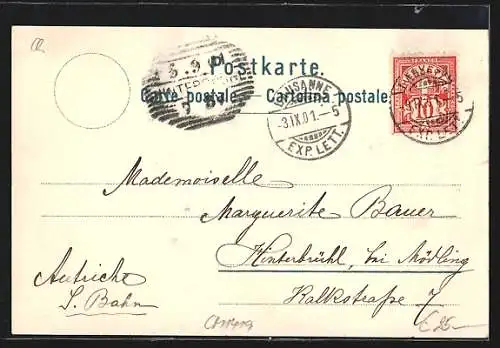 Postkarte.
Carte postale. Cartolina postale.
LAUSANNE
-3.IX.01.-5
EXP. LETT.
EXP. LETT.
10
Mademoiselle
Marguerite Bauer
Hinterbrühl, bei Mödling
Kalkstraße 7
Autriche
S. Bahn
€ 25-